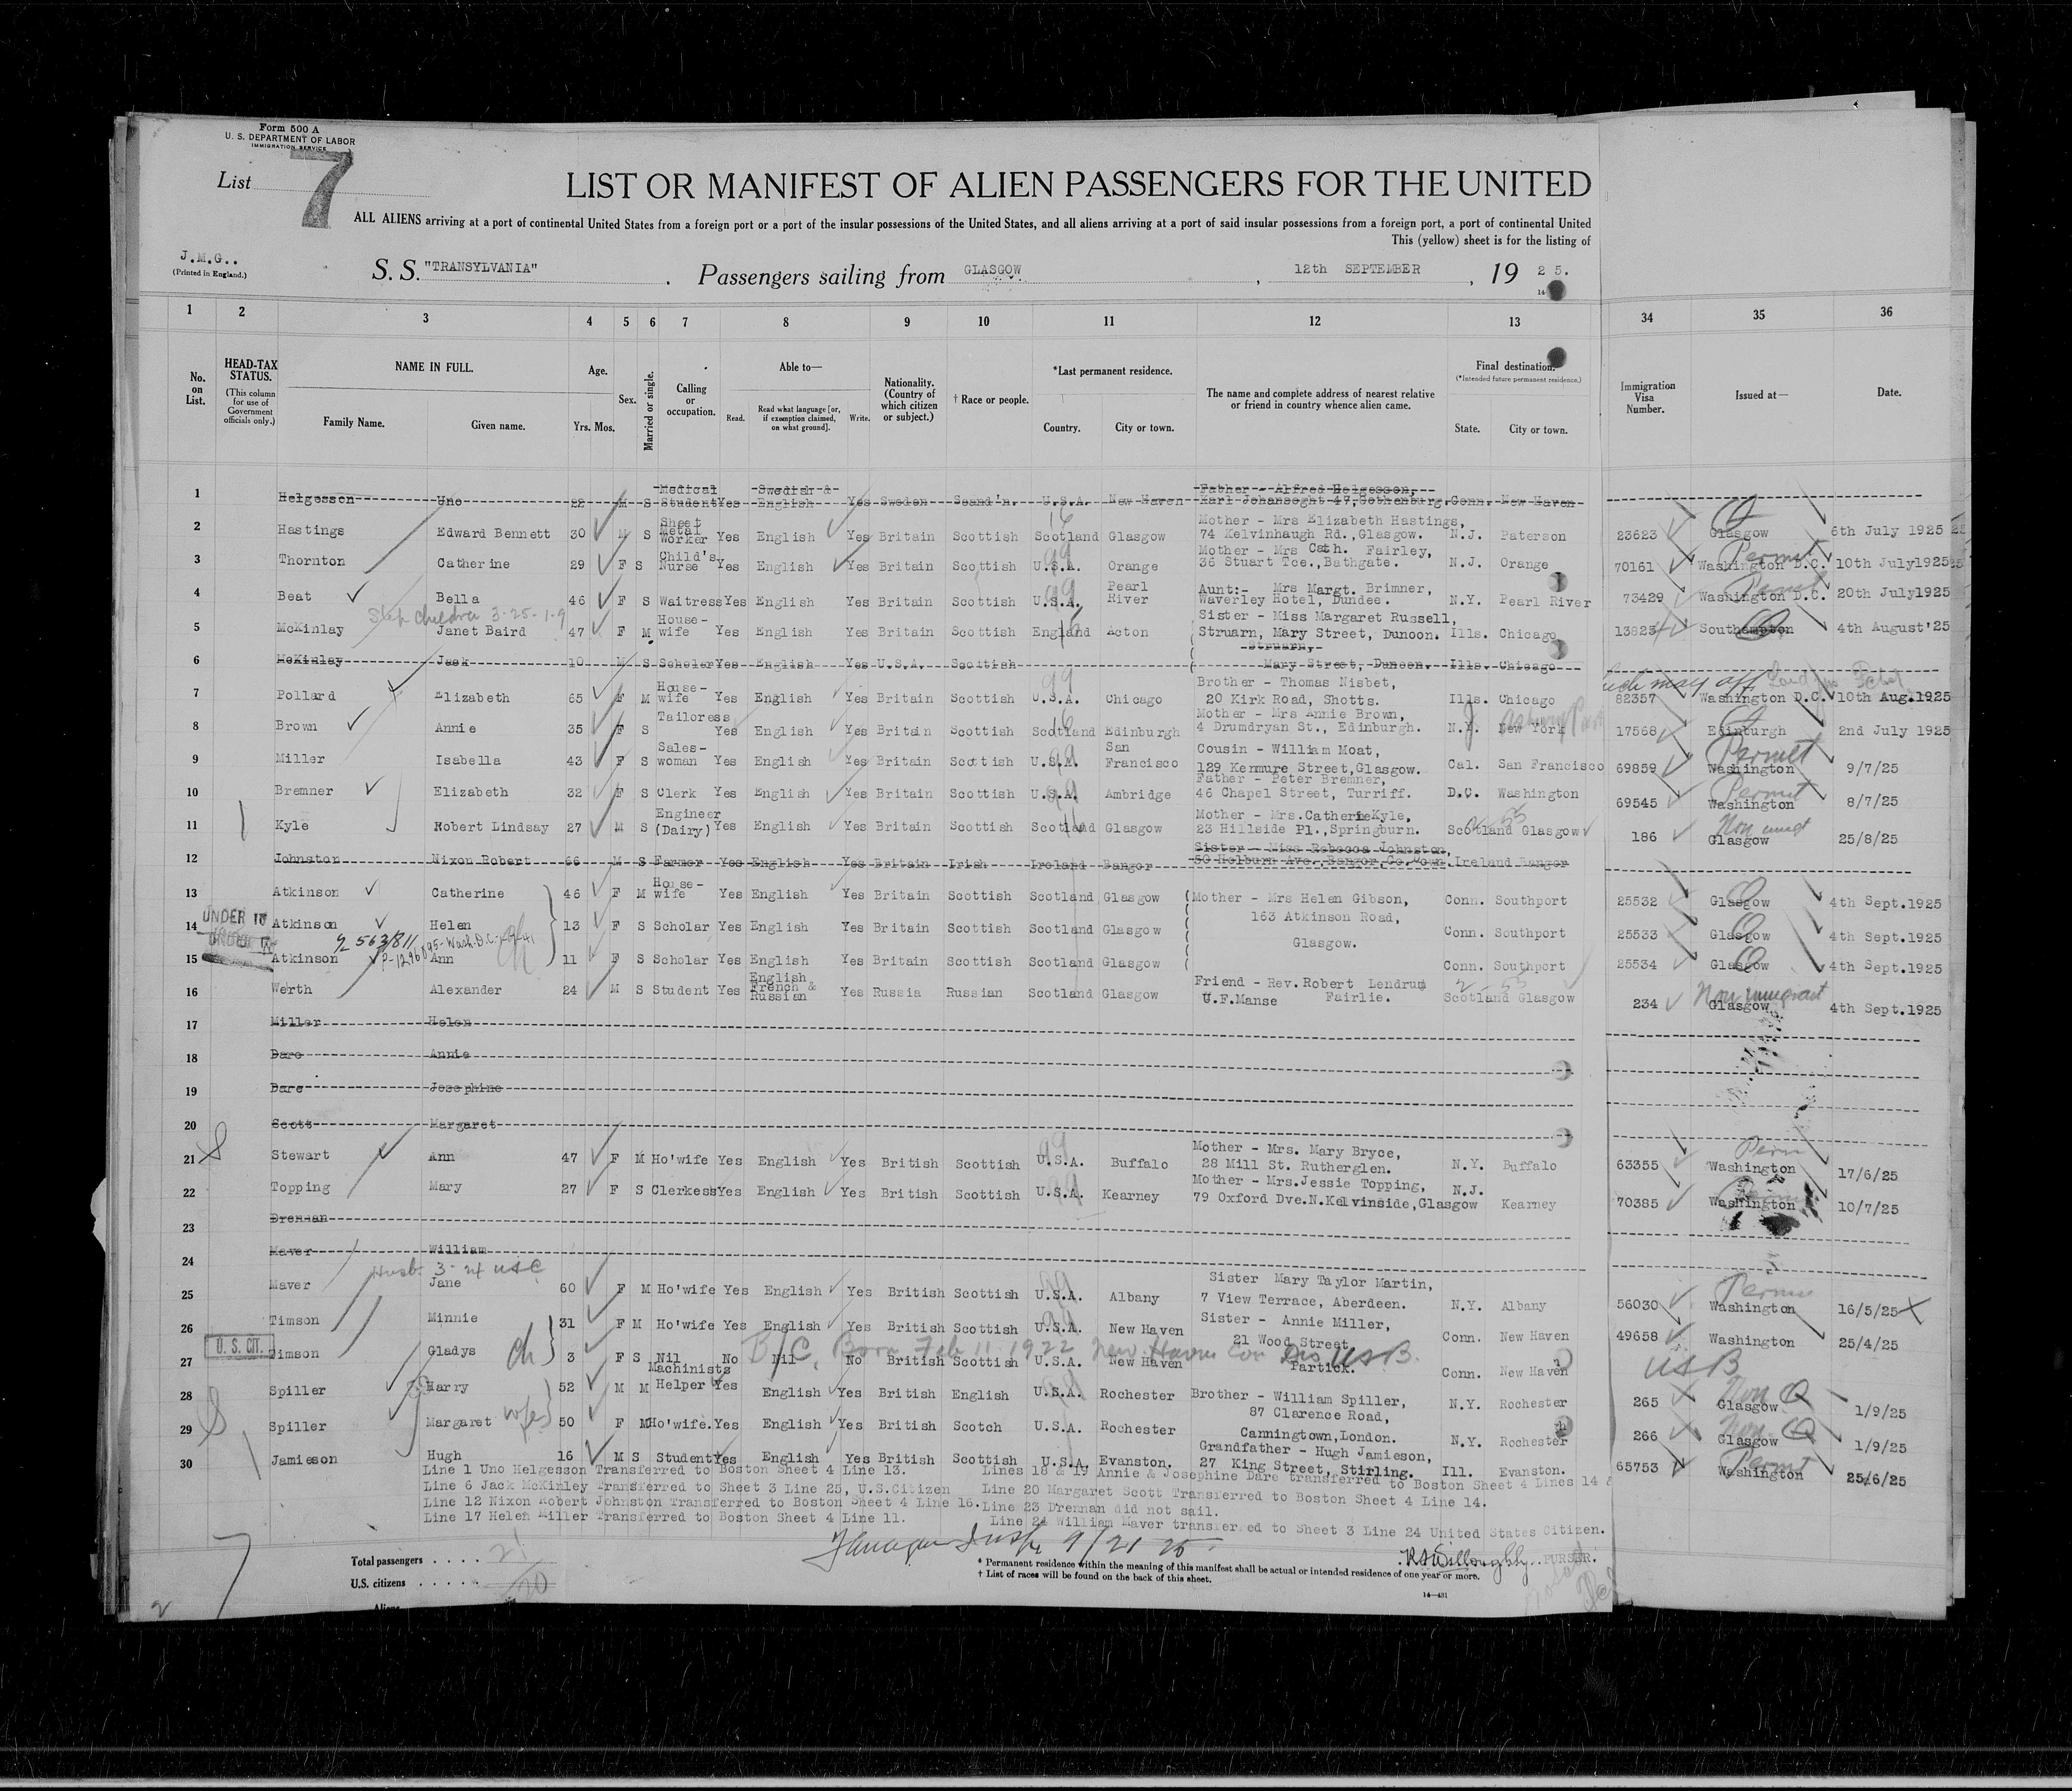 Form 500 A
U. S. DEPARTMENT OF LABOR
IMMIGRATION SERVICE
List 7
LIST OR MANIFEST OF ALIEN PASSENGERS FOR THE UNITED
ALL ALIENS arriving at a port of continental United States from a foreign port or a port of the insular possessions of the United States, and all aliens arriving at a port of said insular possessions from a foreign port, a port of continental United
This (yellow) sheet is for the listing of
J.M.G..
(Printed in England.)
S. S. "TRANSYLVANIA" . Passengers sailing from GLASGOW , 12th SEPTEMBER , 19 25.
1 2 3 4 5 6 7 8 9 10 11 12 13 34 35 36
No. on List.
HEAD-TAX STATUS. (This column for use of Government officials only.)
NAME IN FULL. Family Name. Given name.
Age. Yrs. Mos.
Sex.
Married or single.
Calling or occupation.
Able to— Read. Read what language [or, if exemption claimed, on what ground]. Write.
Nationality. (Country of which citizen or subject.)
† Race or people.
*Last permanent residence. Country. City or town.
The name and complete address of nearest relative or friend in country whence alien came.
Final destination. (*Intended future permanent residence.) State. City or town.
Immigration Visa Number.
Issued at—
Date.
1 Helgesson Uno 22 M S Medical Student Yes Swedish & English Yes Sweden Scand'n. U.S.A. New Haven Father - Alfred Helgesson, Karl Johansgght 47, Gothenburg. Conn. New Haven
2 Hastings Edward Bennett 30 M S Sheet Metal Worker Yes English Yes Britain Scottish Scotland Glasgow Mother - Mrs Elizabeth Hastings, 74 Kelvinhaugh Rd.,Glasgow. N.J. Paterson 23623 Glasgow 6th July 1925
3 Thornton Catherine 29 F S Child's Nurse Yes English Yes Britain Scottish U.S.A. Orange Mother - Mrs Cath. Fairley, 36 Stuart Tce.,Bathgate. N.J. Orange 70161 Permit Washington D.C. 10th July1925
4 Beat Bella 46 F S Waitress Yes English Yes Britain Scottish U.S.A. Pearl River Aunt:- Mrs Margt. Brimner, Waverley Hotel, Dundee. N.Y. Pearl River 73429 Permit Washington D.C. 20th July1925
Step children 3-25-1-9
5 McKinlay Janet Baird 47 F M House-wife Yes English Yes Britain Scottish England Acton Sister - Miss Margaret Russell, Struarn, Mary Street, Dunoon. Ills. Chicago 13823 Southampton 4th August'25
6 McKinlay Jack 10 M S Scholar Yes English Yes U.S.A. Scottish Struarn, Mary Street, Dunoon. Ills. Chicago
7 Pollard Elizabeth 65 F M House-wife Yes English Yes Britain Scottish U.S.A. Chicago Brother - Thomas Nisbet, 20 Kirk Road, Shotts. Ills. Chicago 82357 Washington D.C. 10th Aug.1925
8 Brown Annie 35 F S Tailoress Yes English Yes Britain Scottish Scotland Edinburgh Mother - Mrs Annie Brown, 4 Drumdryan St., Edinburgh. N.Y. New York 17568 Edinburgh 2nd July 1925
9 Miller Isabella 43 F S Sales-woman Yes English Yes Britain Scottish U.S.A. San Francisco Cousin - William Moat, 129 Kenmure Street,Glasgow. Cal. San Francisco 69859 Permit Washington 9/7/25
10 Bremner Elizabeth 32 F S Clerk Yes English Yes Britain Scottish U.S.A. Ambridge Father - Peter Bremner, 46 Chapel Street, Turriff. D.C. Washington 69545 Permit Washington 8/7/25
11 Kyle Robert Lindsay 27 M S Engineer (Dairy) Yes English Yes Britain Scottish Scotland Glasgow Mother - Mrs.Catherine Kyle, 23 Hillside Pl.,Springburn. Scotland Glasgow 186 Non immgt Glasgow 25/8/25
12 Johnston Nixon Robert 66 M S Farmer Yes English Yes Britain Irish Ireland Bangor Sister - Miss Rebecca Johnston, 50 Holburn Ave.,Bangor,Co.Down. Ireland Bangor
13 Atkinson Catherine 46 F M House-wife Yes English Yes Britain Scottish Scotland Glasgow Mother - Mrs Helen Gibson, Conn. Southport 25532 Glasgow 4th Sept.1925
UNDER 16
14 Atkinson Helen 13 F S Scholar Yes English Yes Britain Scottish Scotland Glasgow 163 Atkinson Road, Conn. Southport 25533 Glasgow 4th Sept.1925
15 Atkinson Ann 11 F S Scholar Yes English Yes Britain Scottish Scotland Glasgow Glasgow. Conn. Southport 25534 Glasgow 4th Sept.1925
16 Werth Alexander 24 M S Student Yes English French & Russian Yes Russia Russian Scotland Glasgow Friend - Rev.Robert Lendrum U.F.Manse Fairlie. Scotland Glasgow 234 Non immigrant Glasgow 4th Sept.1925
17 Miller Helen
18 Dare Annie
19 Dare Josephine
20 Scott Margaret
21 Stewart Ann 47 F M Ho'wife Yes English Yes British Scottish U.S.A. Buffalo Mother - Mrs. Mary Bryce, 28 Mill St. Rutherglen. N.Y. Buffalo 63355 Washington 17/6/25
22 Topping Mary 27 F S Clerkess Yes English Yes British Scottish U.S.A. Kearney Mother - Mrs.Jessie Topping, 79 Oxford Dve.N.Kelvinside,Glasgow N.J. Kearney 70385 Washington 10/7/25
23 Drennan
24 Maver William
25 Maver Jane 60 F M Ho'wife Yes English Yes British Scottish U.S.A. Albany Sister Mary Taylor Martin, 7 View Terrace, Aberdeen. N.Y. Albany 56030 Washington 16/5/25
26 Timson Minnie 31 F M Ho'wife Yes English Yes British Scottish U.S.A. New Haven Sister - Annie Miller, 21 Wood Street, Conn. New Haven 49658 Washington 25/4/25
U. S. CIT.
27 Timson Gladys 3 F S Nil No Nil No British Scottish U.S.A. New Haven Partick. Conn. New Haven USB
B/C. Born Feb 11 1922 New Haven Con USB.
28 Spiller Harry 52 M M Machinists Helper Yes English Yes British English U.S.A. Rochester Brother - William Spiller, 87 Clarence Road, N.Y. Rochester 265 Non Q Glasgow 1/9/25
29 Spiller Margaret wife 50 F M Ho'wife. Yes English Yes British Scotch U.S.A. Rochester Canningtown,London. N.Y. Rochester 266 Non Q Glasgow 1/9/25
30 Jamieson Hugh 16 M S Student Yes English Yes British Scottish U.S.A. Evanston. Grandfather - Hugh Jamieson, 27 King Street, Stirling. Ill. Evanston. 65753 Permit Washington 25/6/25
Line 1 Uno Helgesson Transferred to Boston Sheet 4 Line 13.
Line 6 Jack McKinley Transferred to Sheet 3 Line 25, U.S.Citizen
Line 12 Nixon Robert Johnston Transferred to Boston Sheet 4 Line 16.
Line 17 Helen Miller Transferred to Boston Sheet 4 Line 11.
Lines 18 & 19 Annie & Josephine Dare transferred to Boston Sheet 4 Lines 14 &
Line 20 Margaret Scott Transferred to Boston Sheet 4 Line 14.
Line 23 Drennan did not sail.
Line 24 William Maver transferred to Sheet 3 Line 24 United States Citizen.
9/21 25
Total passengers . . . . 21
U.S. citizens . . . . .
Aliens
* Permanent residence within the meaning of this manifest shall be actual or intended residence of one year or more.
† List of races will be found on the back of this sheet.
Willoughby. PURSER.
14—431